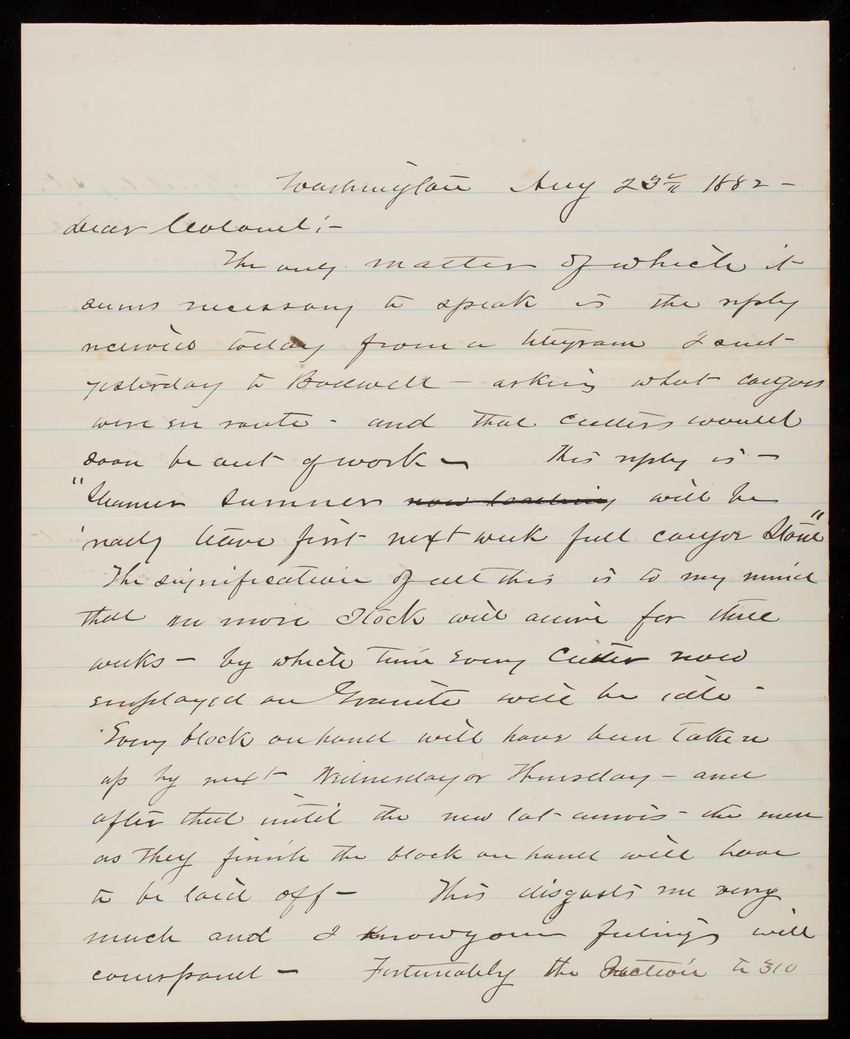 Washington Aug 23d/82 1882 -
Dear Colonel; -
The only matter of which it
seems necessary to speak is the reply
received today from a telegram I sent
yesterday to Bodwell - asking what cargoes
were en route - and that cutters would
soon be out of work - This reply is -
"Steamer Sumner now loading will be
ready leave first next week full cargo Stone"
The signification of all this is to my mind
that no more Stock will arrive for three
weeks - by which time Every Cutter now
employed on Granite will be idle -
Every block on hand will have been taken
up by next Wednesday or Thursday - and
after that until the new lot arrives - the men
as they finish the block on hand will have
to be laid off - This disgusts me very
much and I know your feelings will
correspond - Fortunately the Section to 310